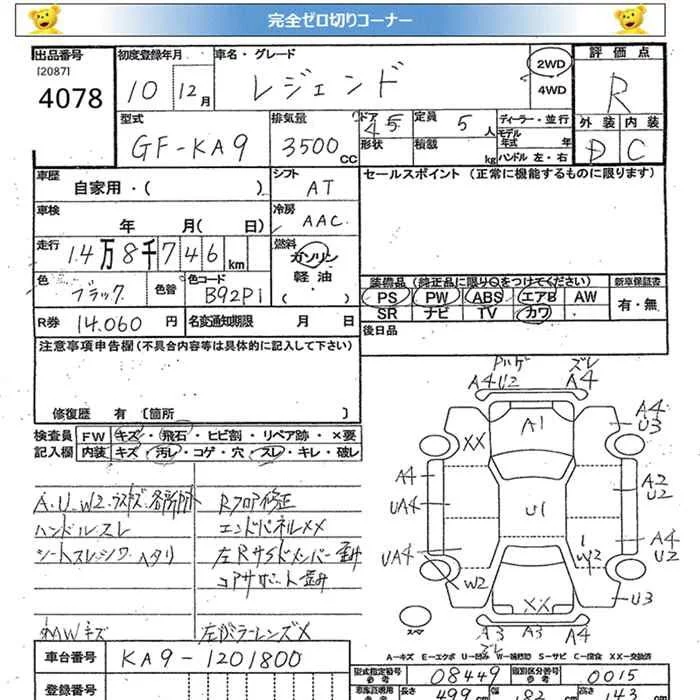 完全ゼロ切りコーナー
出品番号 初度登録年月 車名・グレード 2WD 評価点
[2087] 4078 10 12月 レジェンド 4WD R
型式 排気量 ドア 定員 ディーラー・並行 外装 内装
GF-KA9 3500cc 45 5人 モデル年式 年 D C
形状 積載 kg ハンドル 左・右
車歴 シフト セールスポイント (正常に機能するものに限ります)
自家用・( ) AT
車検 冷房
年 月( 日) AAC
走行 燃料
14万8千746km ガソリン
軽油・( )
色 色替 色コード 装備品 (純正品に限り○をつけてください) 新車保証書
ブラック B92P1 PS PW ABS エアB AW 有・無
SR ナビ TV カワ
R券 14,060円 名変通知期限 月 日 後日品
注意事項申告欄(不具合内容等は具体的に記入して下さい)
修復歴 有 〔箇所 〕
検査員 FW キズ・飛石・ヒビ割・リペア跡・×要
記入欄 内装 キズ・汚レ・コゲ・穴・スレ・キレ・破レ
A.U.W2. 各所 Rフロア修正
ハンドルスレ エンドパネルXX
シートスレシワヘタリ 左Rサイドメンバー歪み
コアサポート歪み
AWキズ 左ドラーレンズX
ズレ
A4 U2 A4
A1 A4
XX U3
A4 A2
UA4 U1 U2
UA4 A4
W2 U2
W2 XX U3
スペア A3 A3 A4
ズレ
A=キズ E=エクボ U=凹み W=補修跡 S=サビ C=腐食 XX=交換済
車台番号 KA9-1201800 型式指定番号 参考 08449 類別区分番号 参考 0015
登録番号 長さ 499 幅 182 高さ 143